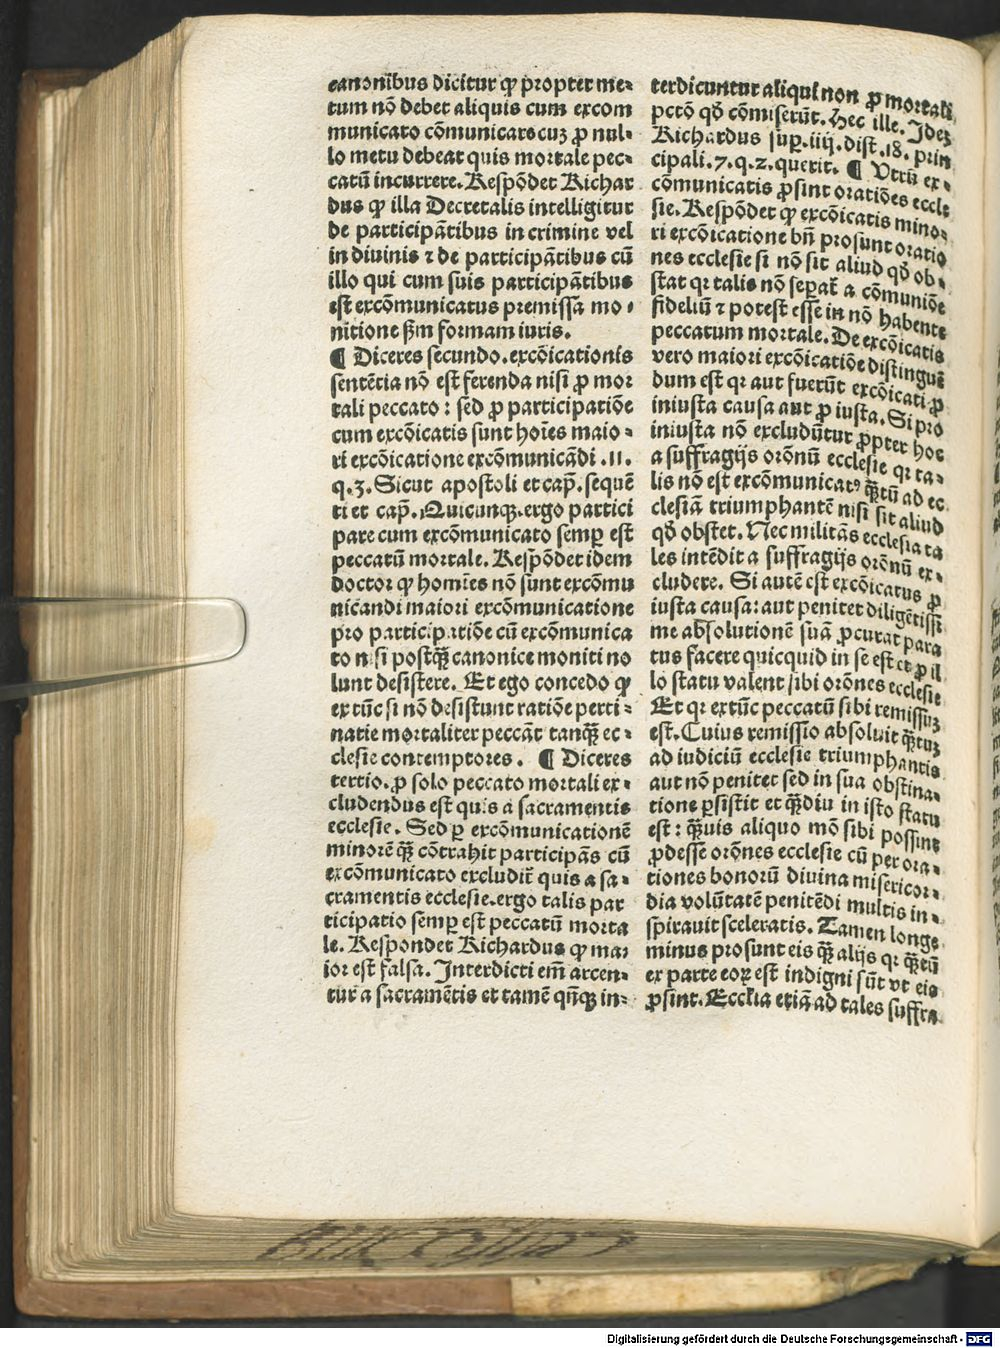 canonibus dicitur ꝙ propter me⸗
tum nõ debet aliquis cum excom
municato cõmunicare cuȝ ꝓ nul⸗
lo metu debeat quis mortale pec⸗
catũ incurrere. Respõdet Richar
dus ꝙ illa Decretalis intelligitur
de participãtibus in crimine vel
in diuinis ⁊ de participãtibus cũ
illo qui cum suis participãtibus
est excõmunicatus premissa mo⸗
nitione ẜm formam iuris.
¶ Diceres secundo. excõicationis
sentẽtia nõ est ferenda nisi ꝓ mor
tali peccato: sed ꝓ participatiõe
cum excõicatis sunt hoĩes maio⸗
ri excõicatione excõmunicãdi .11.
q.3. Sicut apostoli et cap̃. sequẽ
ti et cap̃. Quicunqꝫ. ergo partici
pare cum excõmunicato semꝑ est
peccatũ mortale. Respõdet idem
doctor ꝙ homĩes nõ sunt excõmu
nicandi maiori excõmunicatione
pro participatiõe cũ excõmunica
to nisi postq̃ȝ canonice moniti no
lunt desistere. Et ego concedo ꝙ
ex tũc si nõ desistunt ratiõe perti⸗
natie mortaliter peccãt tanq̃ȝ ec⸗
clesie contemptores. ¶ Diceres
tertio. ꝓ solo peccato mortali ex⸗
cludendus est quis a sacramentis
ecclesie. Sed ꝑ excõmunicationẽ
minorẽ q̃ȝ cõtrahit participãs cũ
excõmunicato excludit̃ quis a sa⸗
cramentis ecclesie. ergo talis par
ticipatio semꝑ est peccatũ morta
le. Respondet Richardus ꝙ ma⸗
ior est falsa. Interdicti em̃ arcen⸗
tur a sacramẽtis et tamẽ qñqꝫ in⸗
terdicuntur aliqui non ꝓ mortali
pctõ qð cõmiserũt. Hec ille. Ideȝ
Richardus suꝑ .iiij. dist .18. prin
cipali .7. q.2. querit. ¶ Vtrũ ex⸗
cõmunicatis ꝓsint oratiões eccle
sie. Respõdet ꝙ excõicatis mino⸗
ri excõicatione bñ prosunt oratio
nes ecclesie si nõ sit aliud qð ob⸗
stat qꝛ talis nõ seꝑat̃ a cõmuniõe
fideliũ ⁊ potest esse in nõ habente
peccatum mortale. De excõicatis
vero maiori excõicatiõe distinguẽ
dum est qꝛ aut fuerũt excõicati ꝓ
iniusta causa aut ꝓ iusta. Si pro
iniusta nõ excludũtur ꝓpter hoc
a suffragijs orõnũ ecclesie qꝛ ta⸗
lis nõ est excõmunicatꝰ q̃ȝtũ ad ec
clesiã triumphantẽ nisi sit aliud
qð obstet. Nec militãs ecclesia ta
les intẽdit a suffragijs orõnũ ex⸗
cludere. Si autẽ est excõicatus ꝓ
iusta causa: aut penitet diligẽtissi
me absolutionẽ suã ꝓcurat para
tus facere quicquid in se est et ꝓ il
lo statu valent sibi orõnes ecclesie
Et qꝛ extũc peccatũ sibi remissuȝ
est. Cuius remissio absoluit q̃ȝtuȝ
ad iudiciũ ecclesie triumphantis
aut nõ penitet sed in sua obstina⸗
tione ꝑsistit et q̃ȝdiu in isto statu
est: q̃ȝuis aliquo mõ sibi possint
ꝓdesse orõnes ecclesie cũ per ora⸗
tiones bonorũ diuina misericor⸗
dia volũtatẽ penitẽdi multis in⸗
spirauit sceleratis. Tamen longe
minus prosunt eis q̃ȝ alijs qꝛ q̃ȝtũ
ex parte eoꝝ est indigni sũt vt eis
ꝓsint. Eccl̃ia etiã ad tales suffra
Digitalisierung gefördert durch die Deutsche Forschungsgemeinschaft - DFG